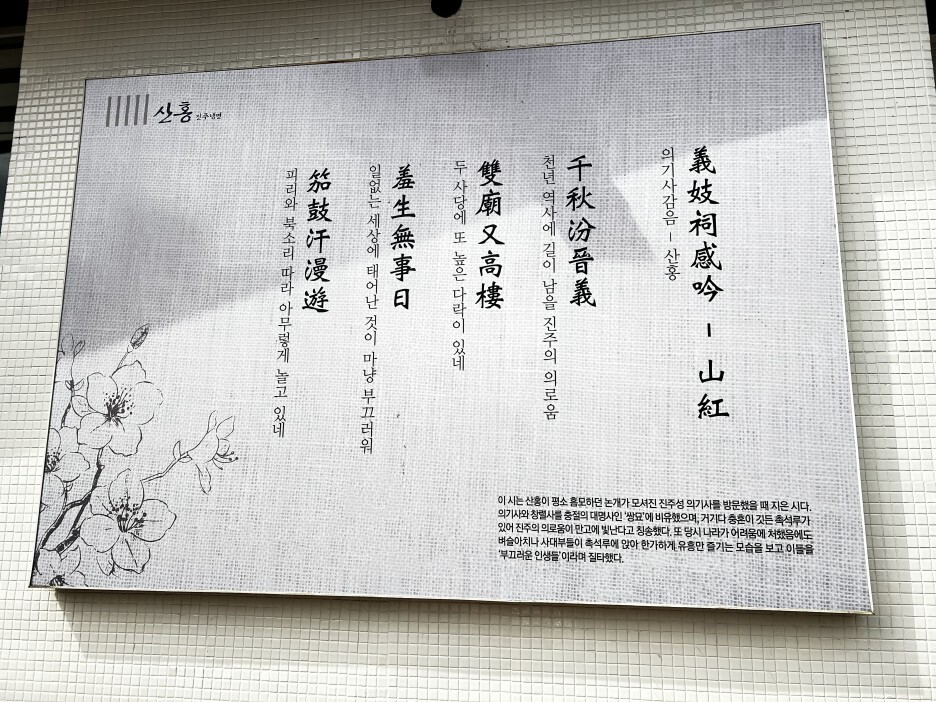 산홍 진주냉면
義妓祠感吟 - 山紅
의기사감음 - 산홍
千秋汾晉義
천년 역사에 길이 남을 진주의 의로움
雙廟又高樓
두 사당에 또 높은 다락이 있네
羞生無事日
일없는 세상에 태어난 것이 마냥 부끄러워
笳鼓汗漫遊
피리와 북소리 따라 아무렇게 놀고 있네
이 시는 산홍이 평소 흠모하던 논개가 모셔진 진주성 의기사를 방문했을 때 지은 시다.
의기사와 창렬사를 충절의 대명사인 '쌍묘'에 비유했으며, 거기다 충혼이 깃든 촉석루가
있어 진주의 의로움이 만고에 빛난다고 칭송했다. 또 당시 나라가 어려움에 처했음에도
벼슬아치나 사대부들이 촉석루에 앉아 한가하게 유흥만 즐기는 모습을 보고 이들을
'부끄러운 인생들'이라며 질타했다.